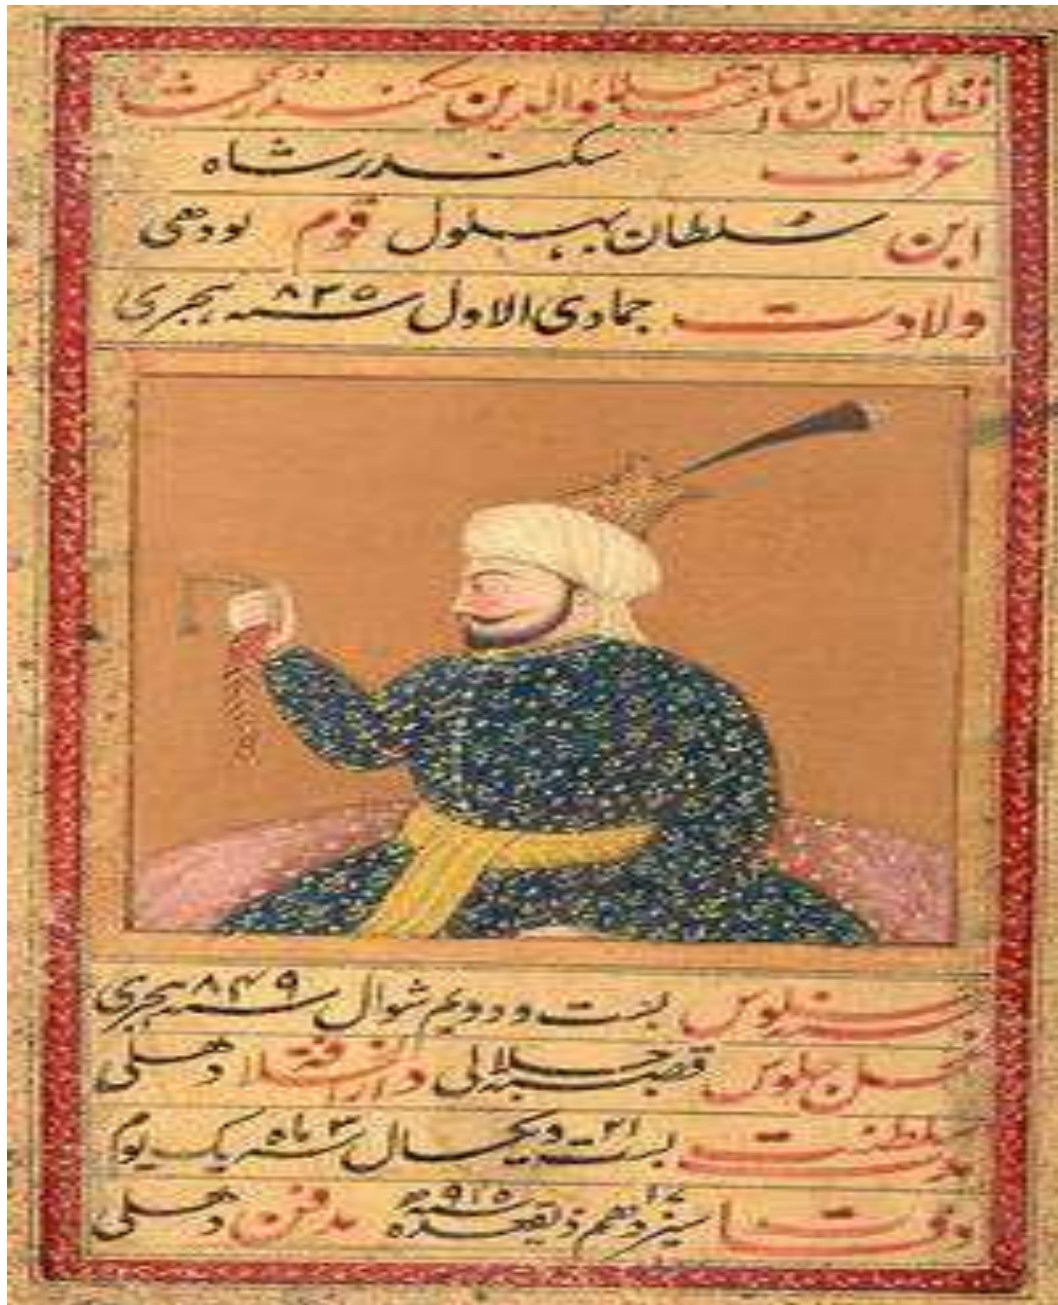 نظام خان الملقب سلطان والدین سکندر
عرف سکندر شاه
ابن سلطان بهلول قوم لودهی
ولادت جمادی الاول سنه ۸۳۵ هجری
سنه جلوس بست و دویم شوال سنه ۸۴۹ هجری
محل جلوس قصبه جلالی دارالخلافة دهلی
مدت سلطنت بست و یکسال ۲۱ سه ۳ ماه یک یوم
وفات سیزدهم ۱۷ ذیقعده سنه ۹۱۵ مدفن دهلی